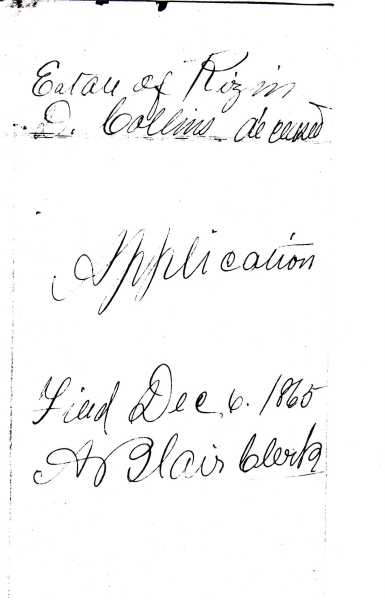 Estate of Rizin
D. Collins deceased
Application
Filed Dec. 6. 1865
A Blair Clerk